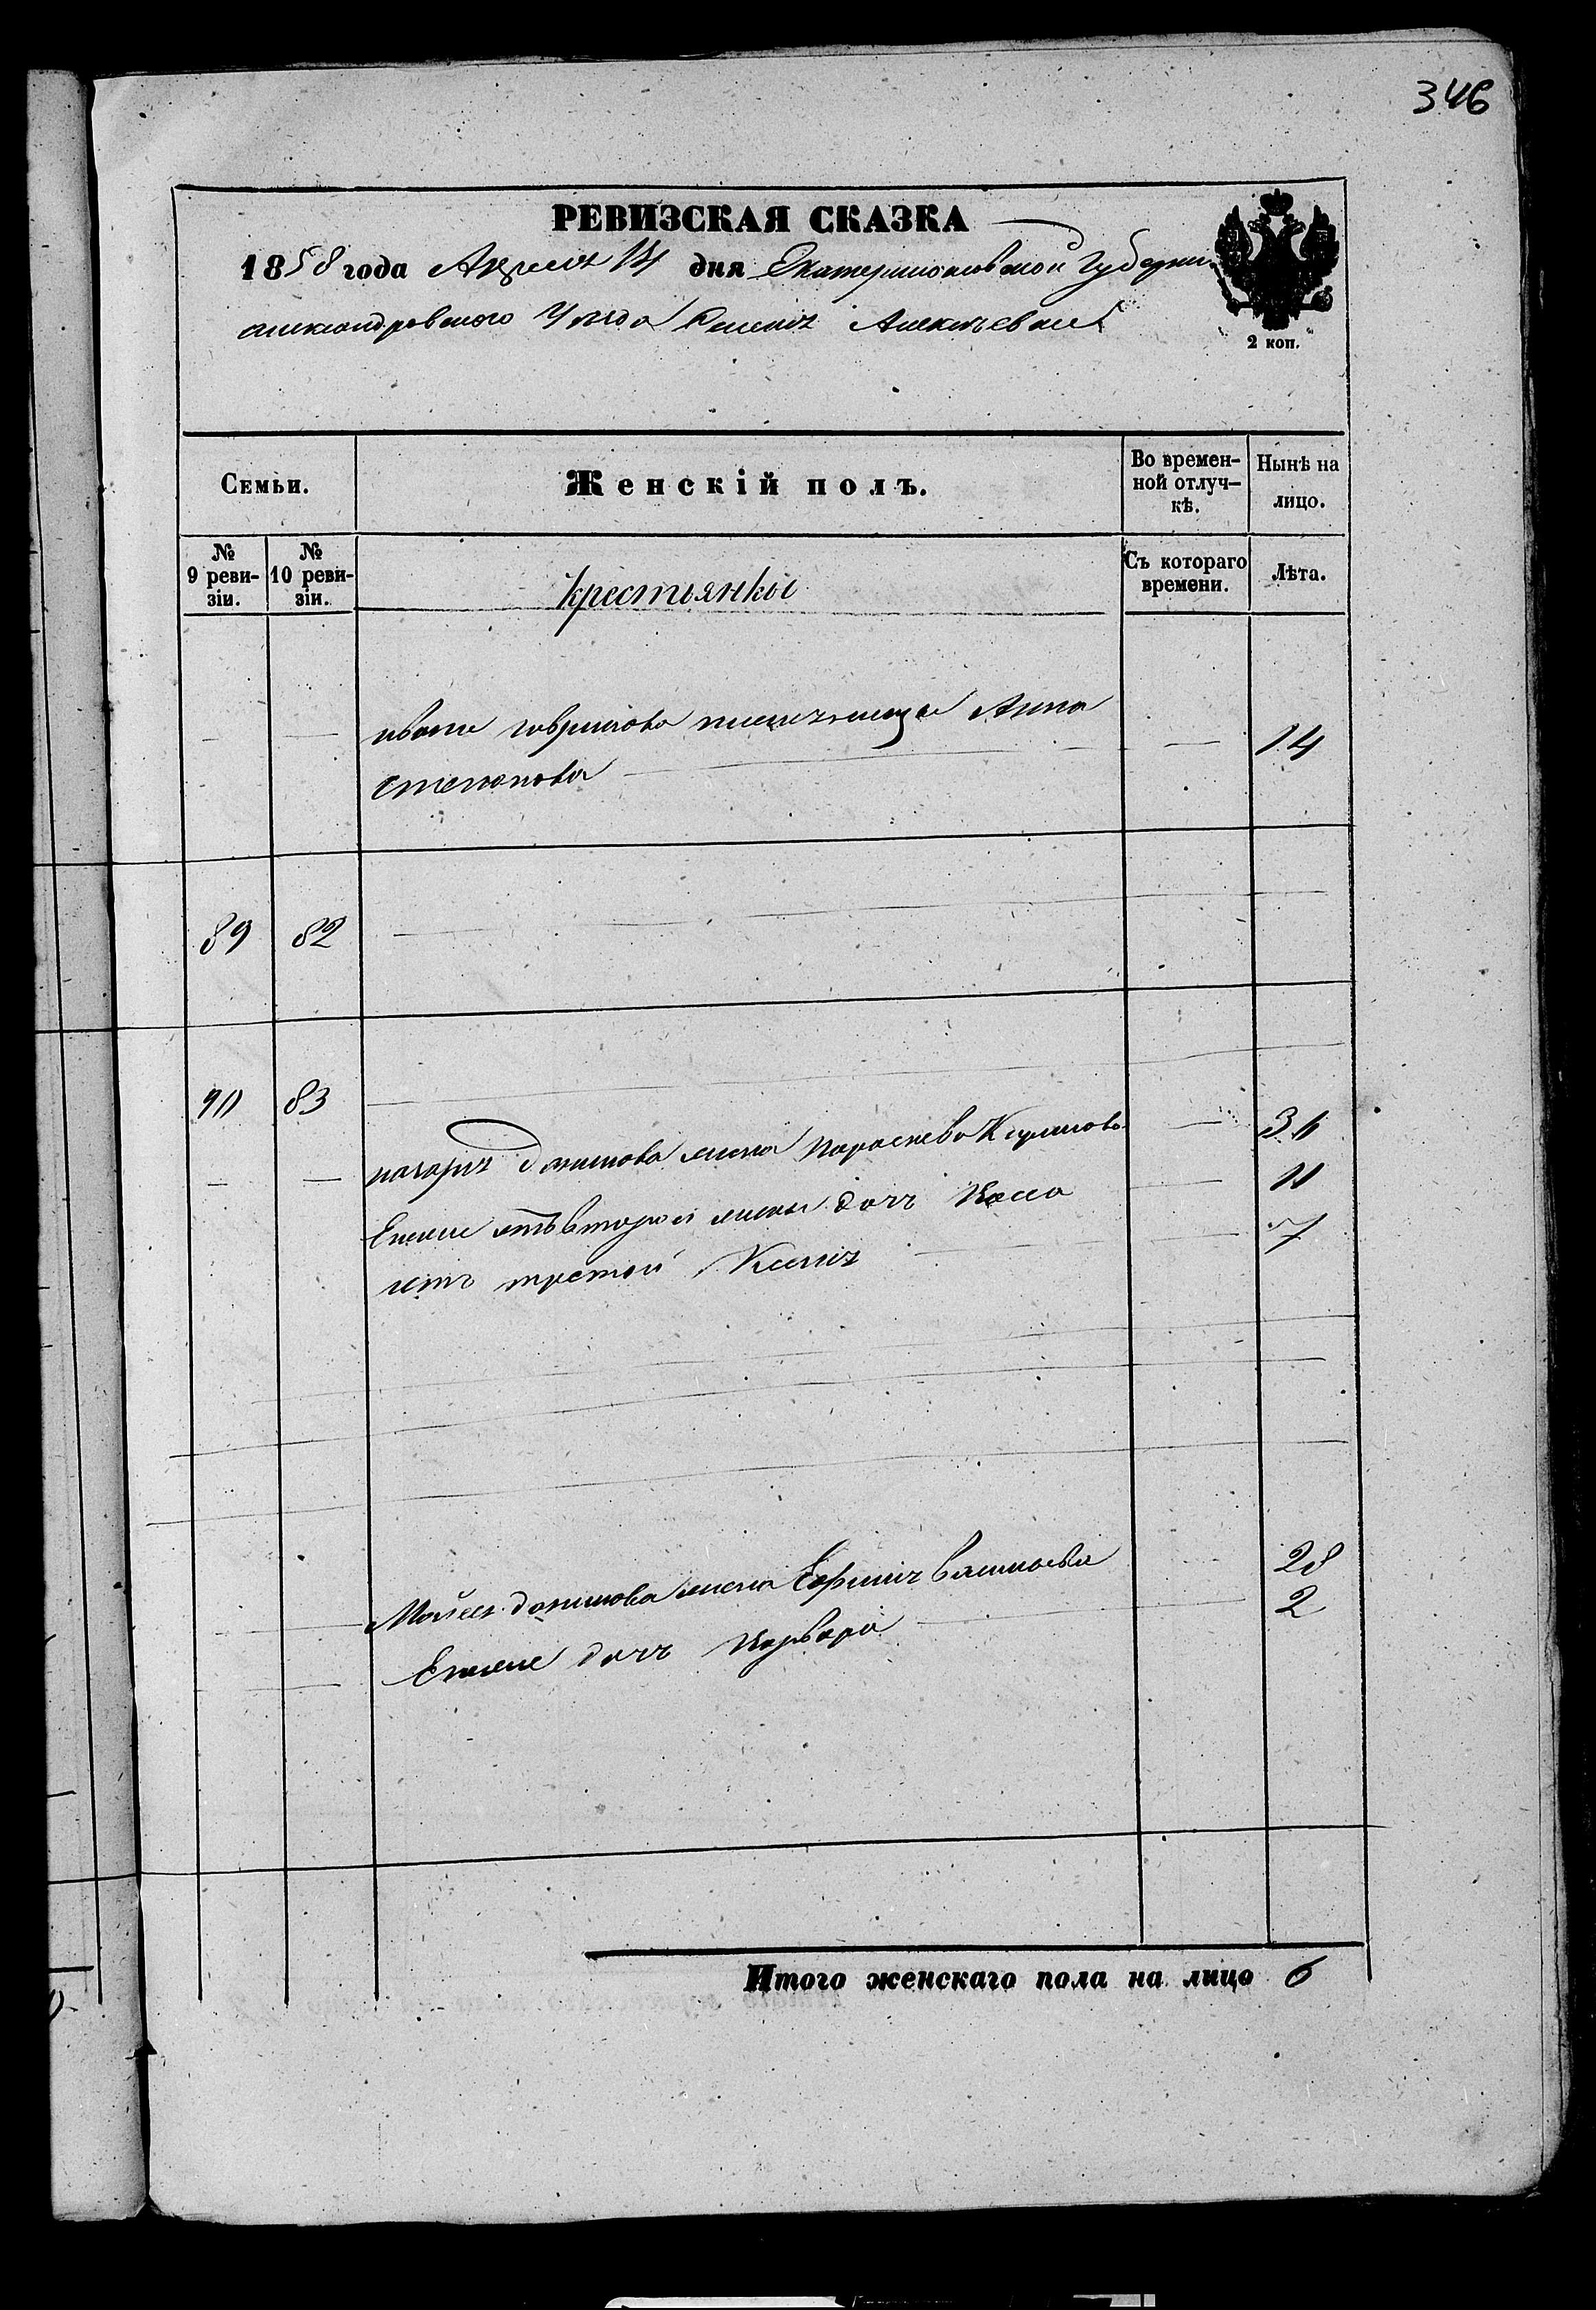 346
РЕВИЗСКАЯ СКАЗКА
1858 года Апреля 14 дня Екатеринославской Губерни
александровского Уезда Алексеевки
2 коп.
Семьи. Женскій полъ. Во времен-ной отлуч-кѣ. Нынѣ на лицо.
№ 9 реви-зіи. № 10 реви-зіи. крестьянки Съ котораго времени. Лѣта.
— — ивана гаврилова племянница Анна — 14
степанова
89 82
90 83
— — назаря данилова жена Параскева — 36
Енеже отъ второй жены дочь Васса — 11
изъ третой Ксенія — 7
— Мойсея данилова жена Ефимія васильева 28
— Енеже дочь Варвара — 2
Итого женскаго пола на лицо 6